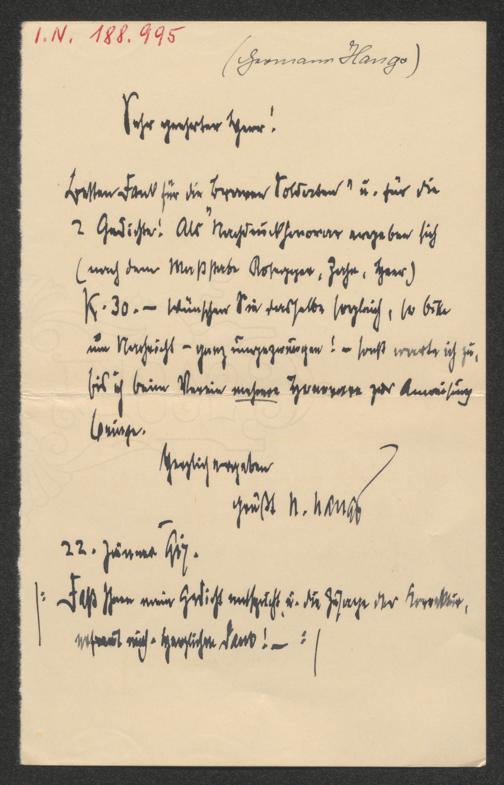 I.N. 188.995
(Hermann Hango)
Sehr geehrter Herr!
Besten Dank für die "Braven Soldaten" u. für die
2 Gedichte! Als Nachdruckhonorar ergeben sich
(nach dem Maßstabe Rosegger, Zahn, Heer)
K. 30.– wünschen Sie dasselbe sogleich, so bitte
um Nachricht – ganz ungezwungen! – sonst warte ich zu,
bis ich beim Verein mehrere Honorare zur Anweisung
bringe.
Herzlich ergeben
grüßt H. Hango
22. Jänner
|: Daß Ihnen mein Gedicht entspricht u. die Zusage der Korrektur,
erfreut mich. Herzlichen Dank! – :|